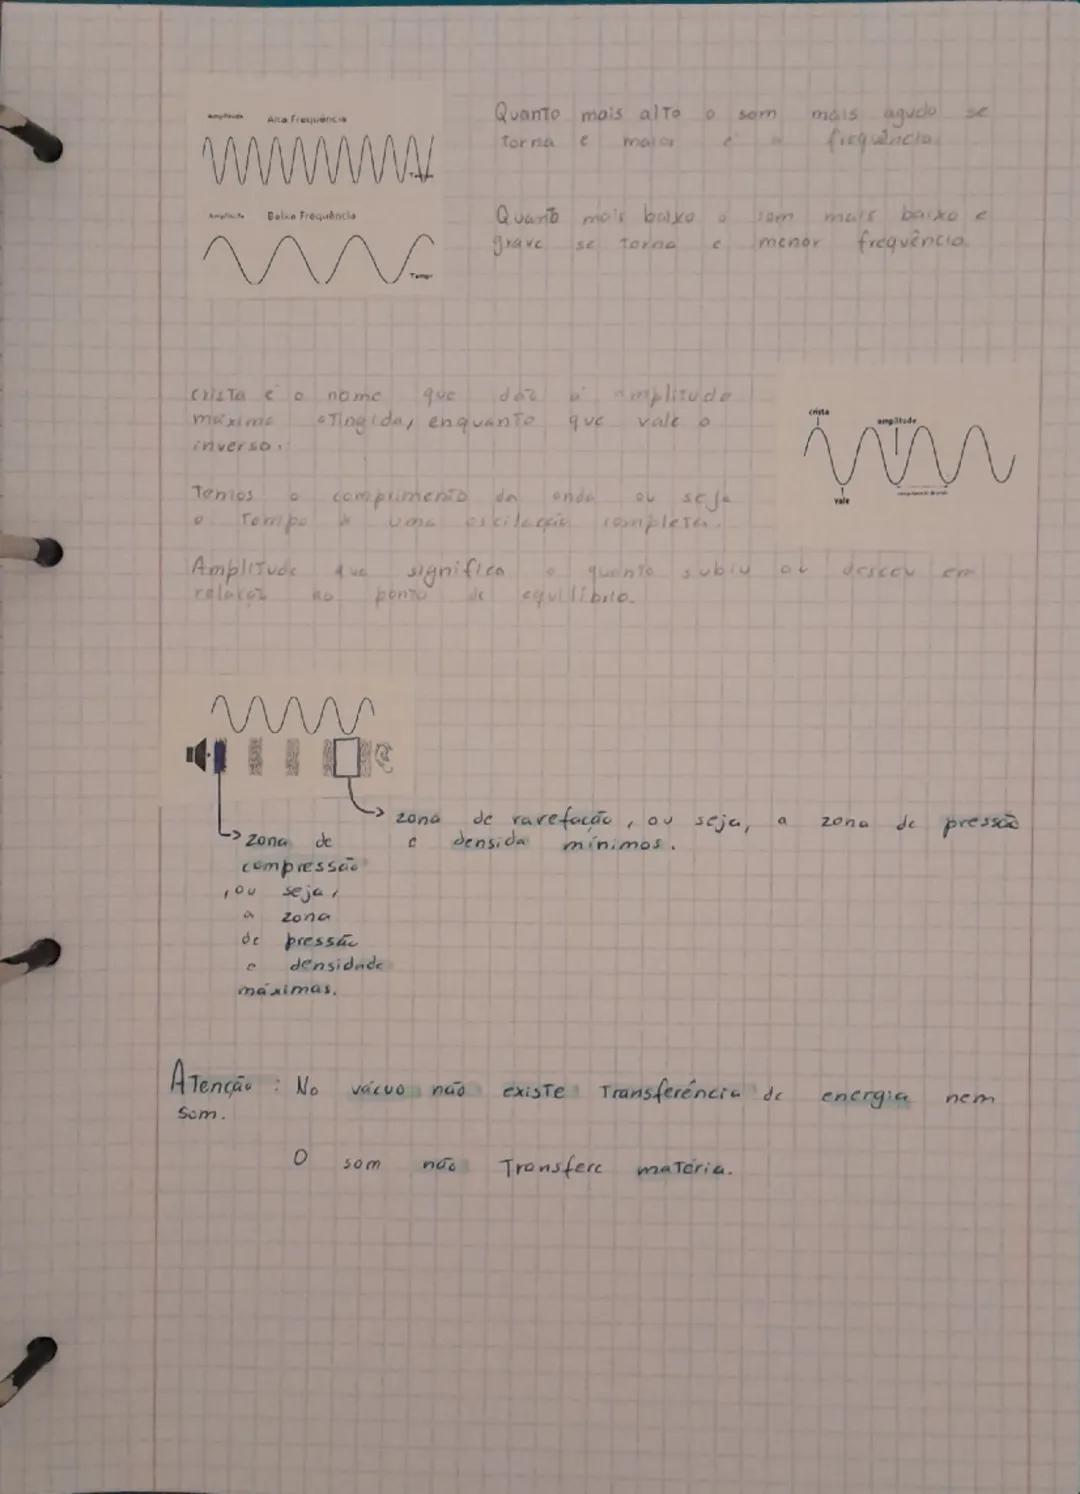 Amplitude Alta Frequência
Tempo
Amplitude Baixa Frequência
Tempo
Quanto mais alto o som mais agudo se
torna e maior é a frequência.
Quanto mais baixo o som mais baixo e
grave se torna e menor frequência.
Crista é o nome que daz à amplitude
máxima atingida, enquanto que vale o
inverso.
crista
amplitude
vale
Temos o comprimento da onda ou seja
o Tempo de uma oscilação completa.
Amplitude que significa o quanto subiu ou desceu em
relação ao ponto de equilíbrio.
zona de rarefação, ou seja, a zona de pressão
e densida mínimos.
zona de
compressão
, ou seja,
a zona
de pressão
e densidade
máximas.
Atenção : No vácuo não existe Transferência de energia nem
som.
O som não Transfere matéria.